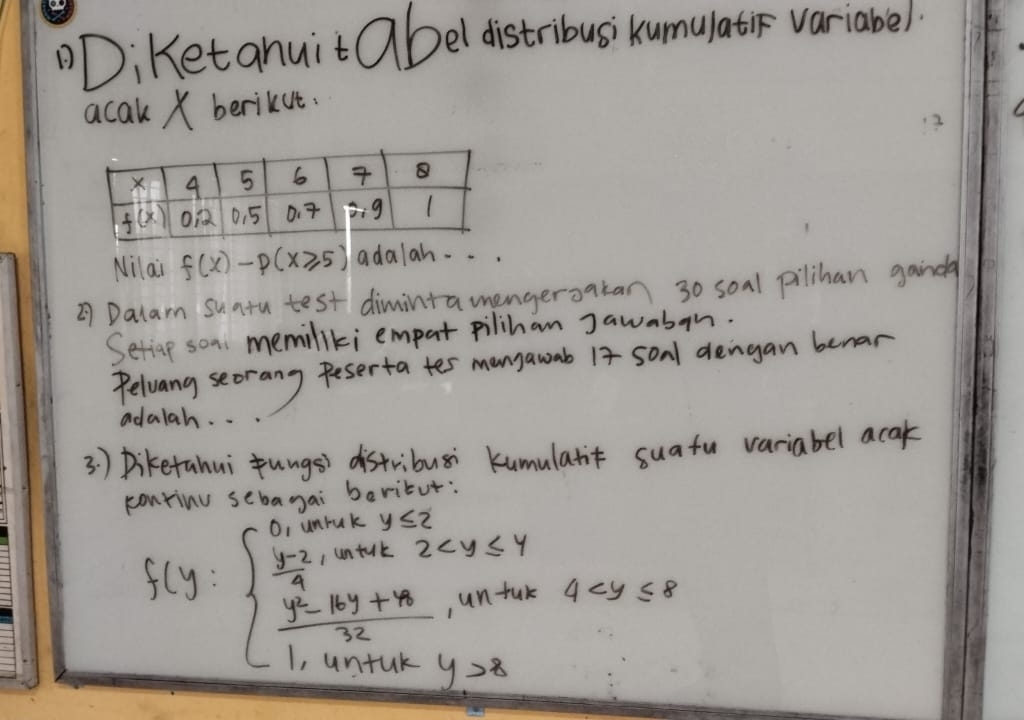 1) Diketahui tabel distribusi kumulatif variabel
acak X berikut:
x 4 5 6 7 8
f(x) 0,2 0,5 0.7 0.9 1
Nilai f(x) - p(x≥5) adalah . . .
2) Dalam suatu test diminta mengerjakan 30 soal pilihan ganda
Setiap soal memiliki empat pilihan Jawaban.
Peluang seorang Peserta tes menjawab 17 soal dengan benar
adalah . . .
3.) Diketahui fungsi distribusi kumulatif suatu variabel acak
kontinu sebagai berikut:
f(y : { 0, untuk y ≤ 2
y-2/4, untuk 2 < y ≤ 4
y² - 16y + 48/32, untuk 4 < y ≤ 8
1, untuk y > 8